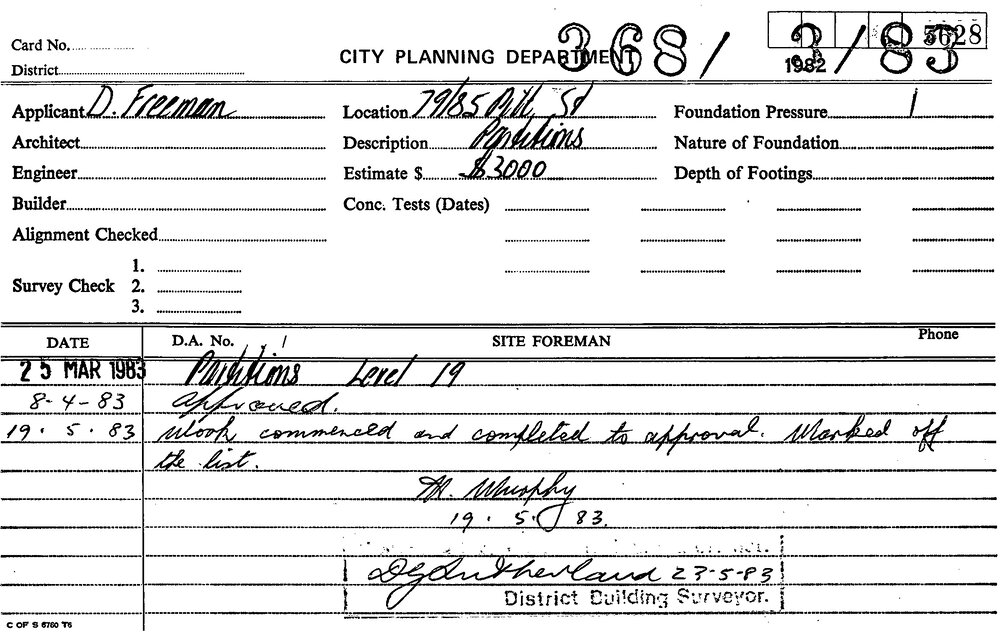 Card No.
CITY PLANNING DEPARTMENT
368/ 3/83
5628
1982
District
Applicant D. Freeman Location 79/85 Pitt St Foundation Pressure
Architect Description Partitions Nature of Foundation
Engineer Estimate $ $3000 Depth of Footings
Builder Conc. Tests (Dates)
Alignment Checked
1.
Survey Check 2.
3.
DATE D.A. No. / SITE FOREMAN Phone
25 MAR 1983 Partitions Level 19
8-4-83 approved.
19.5.83 Work commenced and completed to approval. Marked off
the list.
M. Murphy
19.5.83.
DG Sutherland 23-5-83
District Building Surveyor.
C OF S 6760 T6